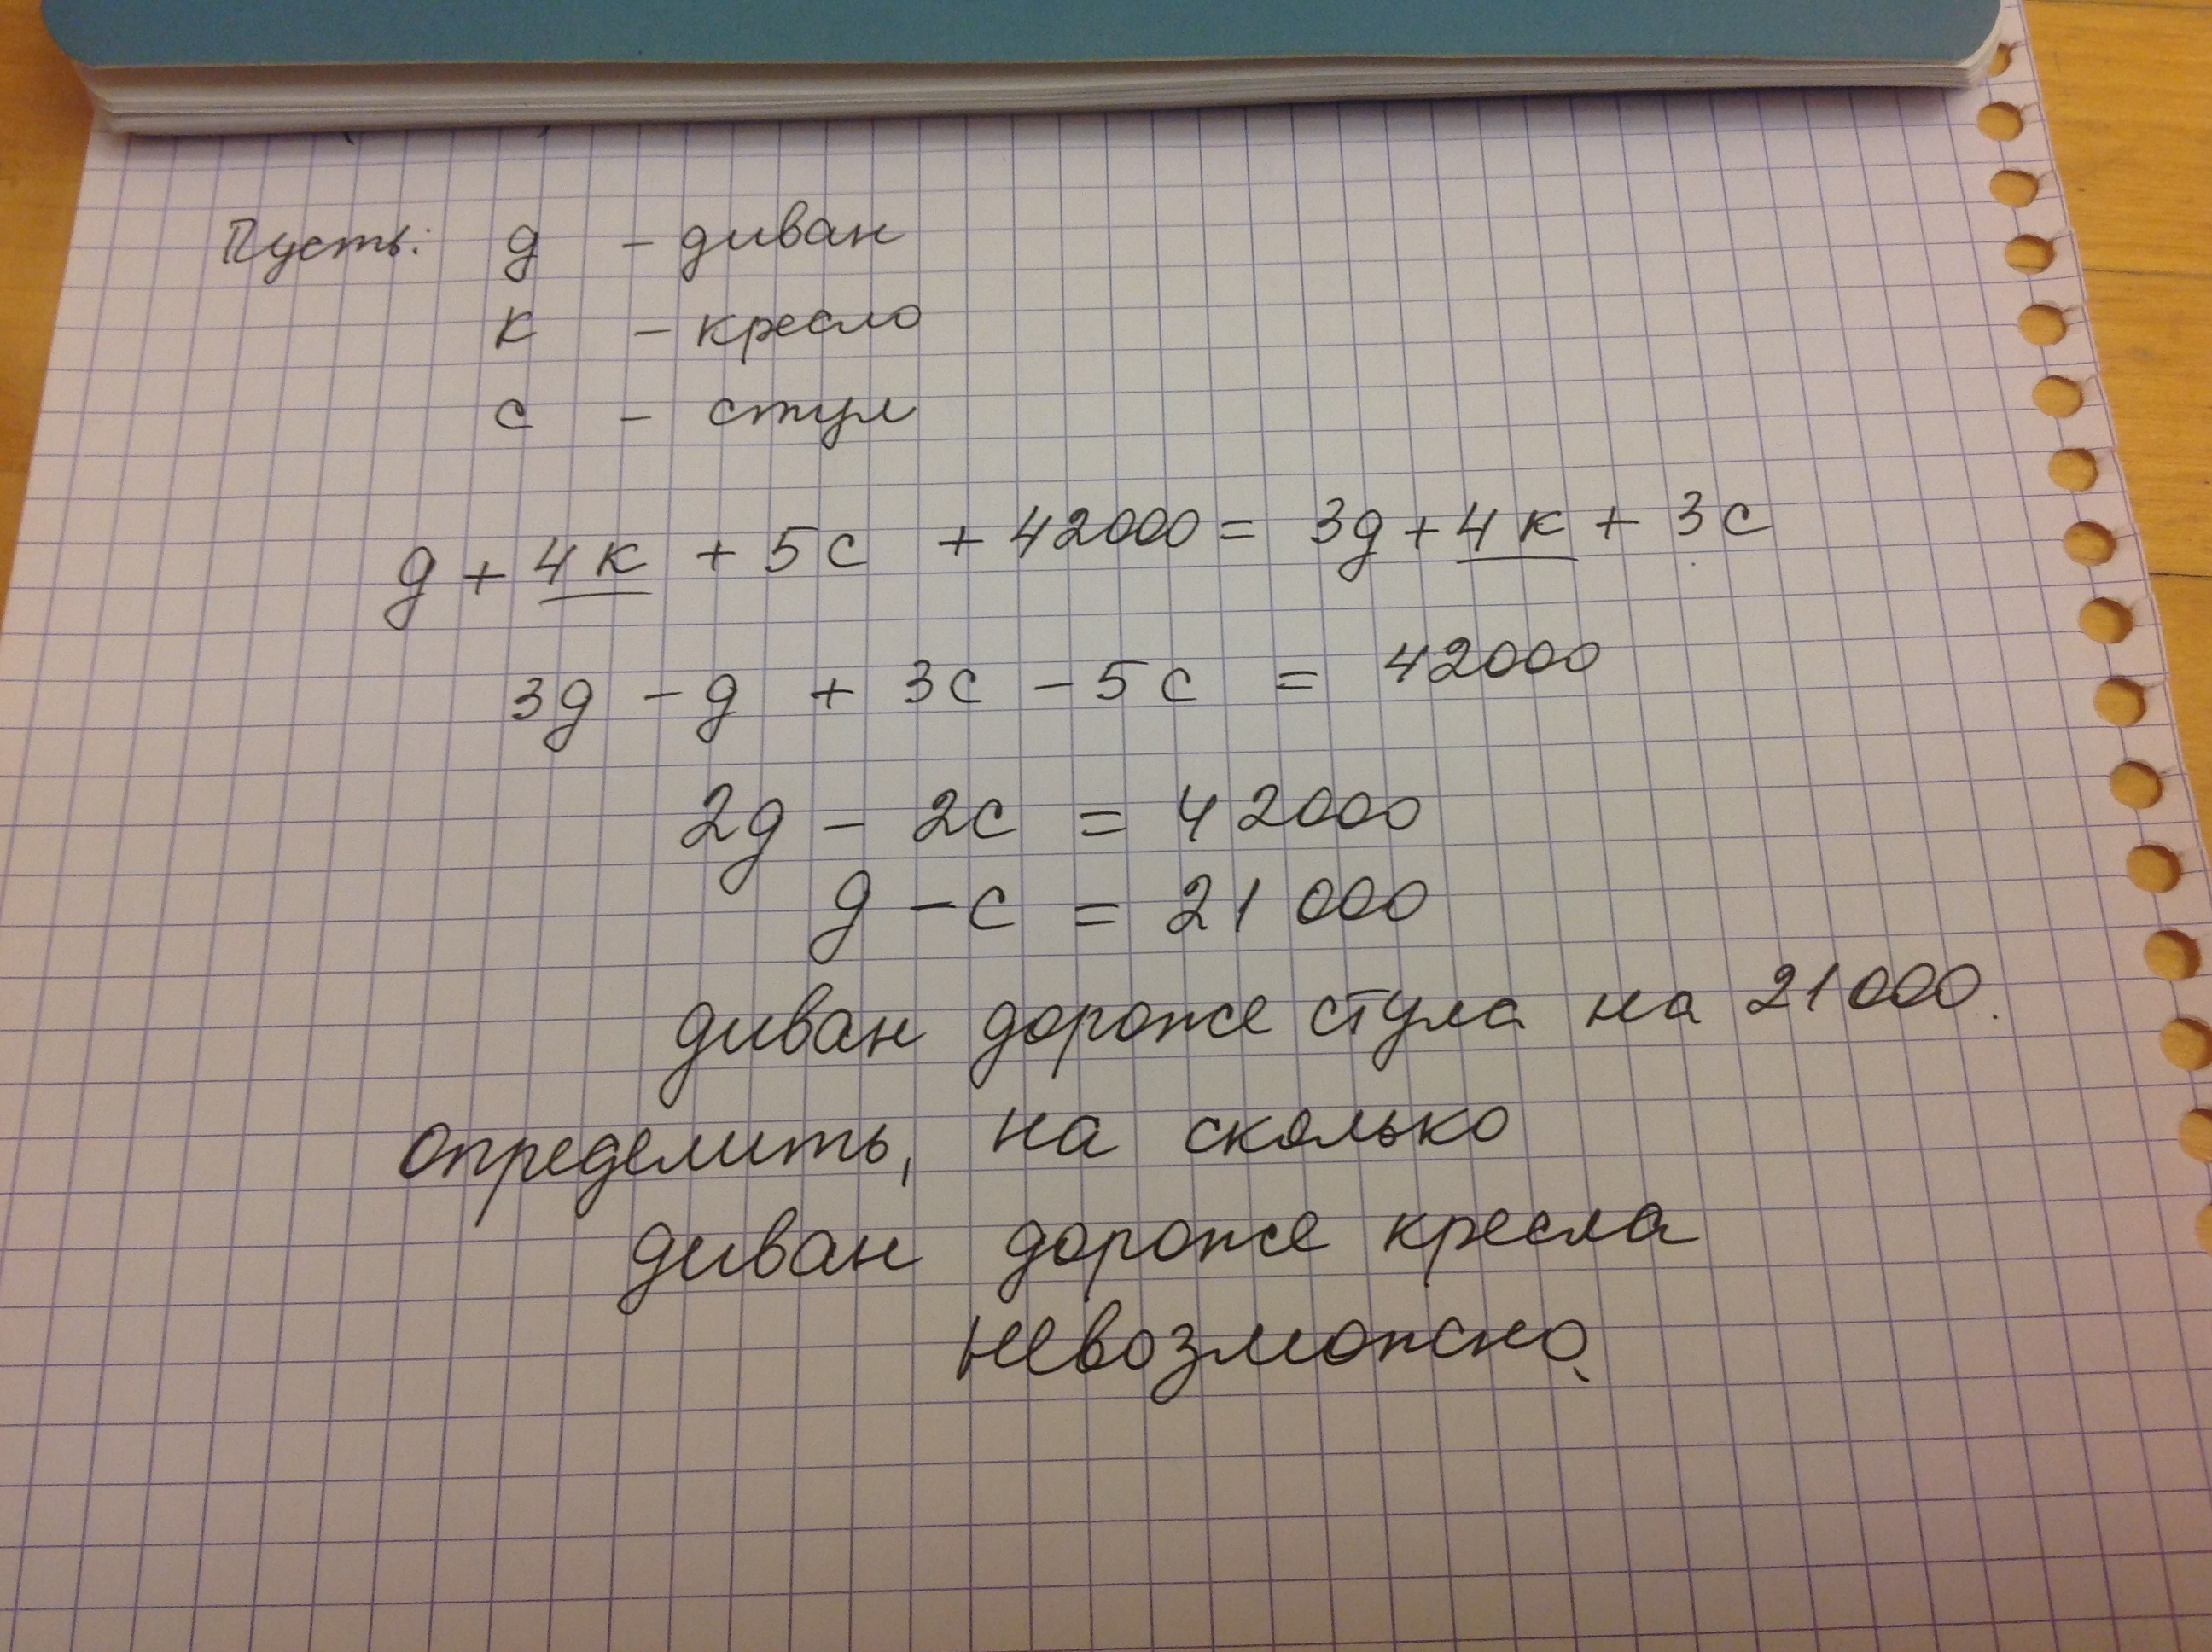 Пусть: д - диван
к - кресло
с - стул
д + 4к + 5с + 42000 = 3д + 4к + 3с
3д - д + 3с - 5с = 42000
2д - 2с = 42000
д - с = 21000
диван дороже стула на 21000.
определить, на сколько
диван дороже кресла
невозможно.